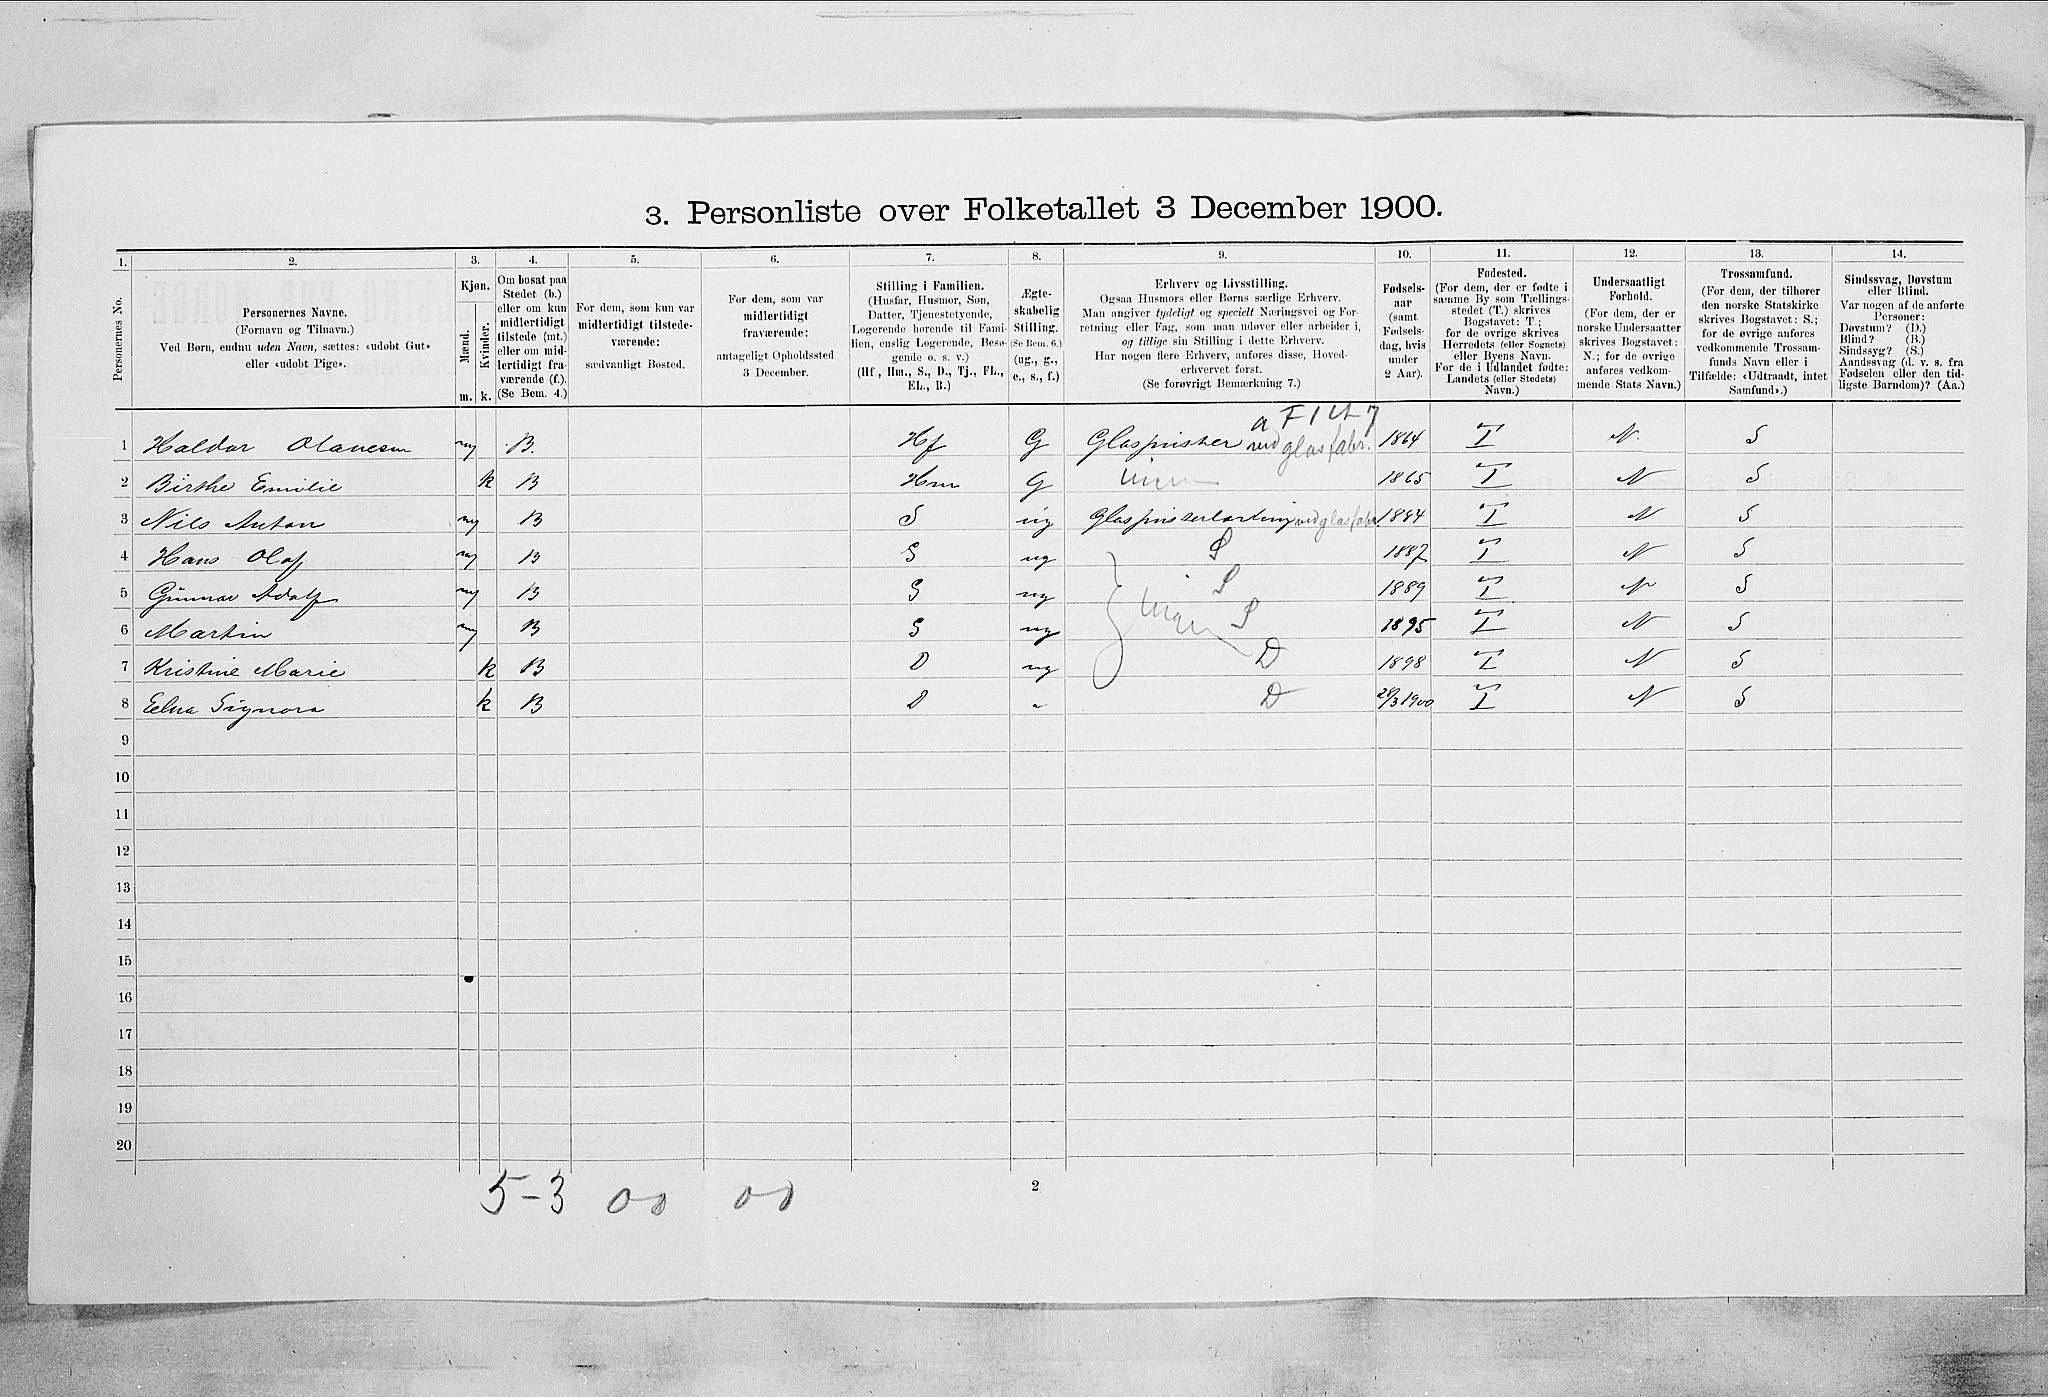 3. Personliste over Folketallet 3 December 1900.
1. 2. 3. 4. 5. 6. 7. 8. 9. 10. 11. 12. 13. 14.
Personernes No.
Personernes Navne.
(Fornavn og Tilnavn.)
Ved Børn, endnu uden Navn, sættes: «udøbt Gut»
eller «udøbt Pige».
Kjøn.
Mænd.
Kvinder.
m. k.
Om bosat paa
Stedet (b.)
eller om kun
midlertidigt
tilstede (mt.)
eller om mid-
lertidigt fra-
værende (f.).
(Se Bem. 4.)
For dem, som kun var
midlertidigt tilstede-
værende:
sædvanligt Bosted.
For dem, som var
midlertidigt
fraværende:
antageligt Opholdssted
3 December.
Stilling i Familien.
(Husfar, Husmor, Søn,
Datter, Tjenestetyende,
Logerende hørende til Fami-
lien, enslig Logerende, Besø-
gende o. s. v.)
(Hf., Hm., S., D., Tj., FL.,
EL., B.)
Ægte-
skabelig
Stilling.
(Se Bem. 6.)
(ug., g.,
e., s., f.)
Erhverv og Livsstilling.
Ogsaa Husmors eller Børns særlige Erhverv.
Man angiver tydeligt og specielt Næringsvei og For-
retning eller Fag, som man udøver eller arbeider i,
og tillige sin Stilling i dette Erhverv.
Har nogen flere Erhverv, anføres disse, Hoved-
erhvervet først.
(Se forøvrigt Bemærkning 7.)
Fødsels-
aar
(samt
Fødsels-
dag, hvis
under
2 Aar).
Fødested.
(For dem, der er fødte i
samme By som Tællings-
stedet (T.) skrives
Bogstavet: T.;
for de øvrige skrives
Herredets (eller Sognets)
eller Byens Navn.
For de i Udlandet fødte:
Landets (eller Stedets)
Navn.)
Undersaatligt
Forhold.
(For dem, der er
norske Undersaatter
skrives Bogstavet:
N.; for de øvrige
anføres vedkom-
mende Stats Navn.)
Trossamfund.
(For dem, der tilhører
den norske Statskirke
skrives Bogstavet: S.;
for de øvrige anføres
vedkommende Trossam-
funds Navn eller i
Tilfælde: «Udtraadt, intet
Samfund».)
Sindssvag, Døvstum
eller Blind.
Var nogen af de anførte
Personer:
Døvstum? (D.)
Blind? (B.)
Sindssyg? (S.)
Aandssvag (d. v. s. fra
Fødselen eller den tid-
ligste Barndom)? (Aa.)
1 Haldor Olavesen m B. Hf G Glaspuster ved glasfabr. 1864 T N. S
2 Birthe Emilie k B Hm G 1865 T N S
3 Nils Anton m B S ug Glaspusterlærling ved glasfabr 1884 T N S
4 Hans Olaf m B S ug S 1887 T N S
5 Gunnar Adolf m B S ug S 1889 T N S
6 Martin m B S ug S 1895 T N S
7 Kristine Marie k B D ug D 1898 T N S
8 Edna Signora k B D „ D 28/3 1900 T N S
9
10
11
12
13
14
15
16
17
18
19
20
5-3 00 00
2